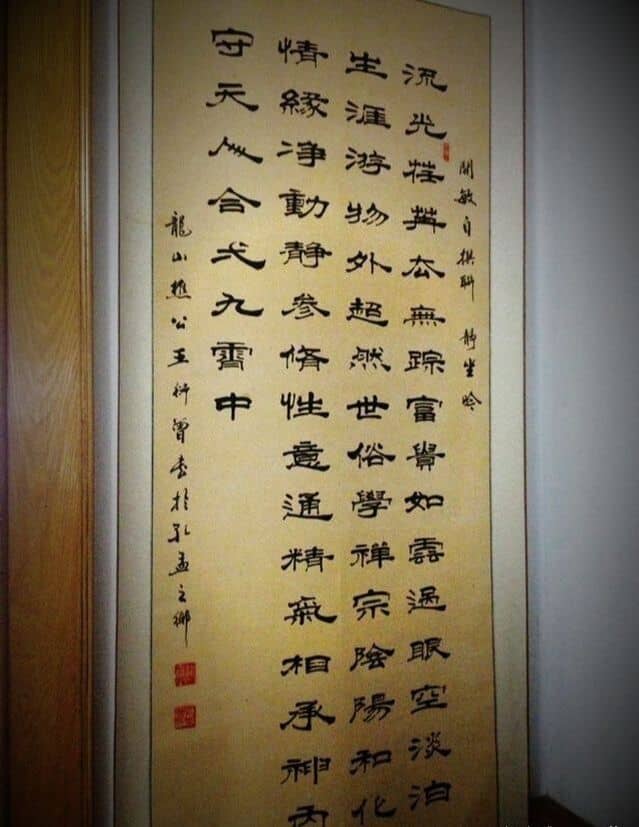 敏自撰联 静坐吟
流光荏苒厺無踪富貴如雲過眼空淡泊
生涯游物外超然世俗學禪宗陰陽和化
情緣净動靜參脩性意通精氣相承神内
守天人合弌九霄中
龍山樵公王衍曾書於孔孟之鄉